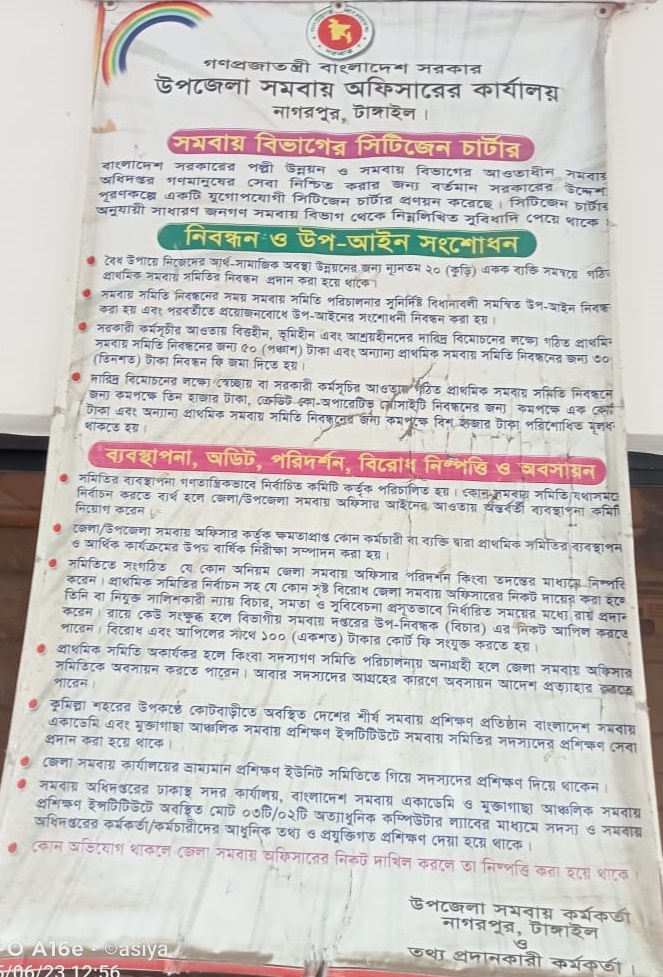 গণপ্রজাতন্ত্রী বাংলাদেশ সরকার
উপজেলা সমবায় অফিসারের কার্যালয়
নাগরপুর, টাঙ্গাইল।
সমবায় বিভাগের সিটিজেন চার্টার
বাংলাদেশ সরকারের পল্লী উন্নয়ন ও সমবায় বিভাগের আওতাধীন সমবায়
অধিদপ্তর গণমানুষের সেবা নিশ্চিত করার জন্য বর্তমান সরকারের উদ্দেশ্য
পূরণকল্পে একটি যুগোপযোগী সিটিজেন চার্টার প্রণয়ন করেছে। সিটিজেন চার্টার
অনুযায়ী সাধারণ জনগণ সমবায় বিভাগ থেকে নিম্নলিখিত সুবিধাদি পেয়ে থাকে :
নিবন্ধন ও উপ-আইন সংশোধন
বৈধ উপায়ে নিজেদের আর্থ-সামাজিক অবস্থা উন্নয়নের জন্য ন্যূনতম ২০ (কুড়ি) একক ব্যক্তি সমন্বয়ে গঠিত
প্রাথমিক সমবায় সমিতির নিবন্ধন প্রদান করা হয়ে থাকে।
সমবায় সমিতি নিবন্ধনের সময় সমবায় সমিতি পরিচালনার সুনির্দিষ্ট বিধানাবলী সমন্বিত উপ-আইন নিবন্ধ
করা হয় এবং পরবর্তীতে প্রয়োজনবোধে উপ-আইনের সংশোধনী নিবন্ধন করা হয়।
সরকারী কর্মসূচীর আওতায় বিত্তহীন, ভূমিহীন এবং আশ্রয়হীনদের দারিদ্র বিমোচনের লক্ষ্যে গঠিত প্রাথমি
সমবায় সমিতি নিবন্ধনের জন্য ৫০ (পঞ্চাশ) টাকা এবং অন্যান্য প্রাথমিক সমবায় সমিতি নিবন্ধনের জন্য ৩০
(তিনশত) টাকা নিবন্ধন ফি জমা দিতে হয়।
দারিদ্র বিমোচনের লক্ষ্যে স্বেচ্ছায় বা সরকারী কর্মসূচির আওতায় গঠিত প্রাথমিক সমবায় সমিতি নিবন্ধনে
জন্য কমপক্ষে তিন হাজার টাকা, ক্রেডিট কো-অপারেটিভ সোসাইটি নিবন্ধনের জন্য কমপক্ষে এক কো
টাকা এবং অন্যান্য প্রাথমিক সমবায় সমিতি নিবন্ধনের জন্য কমপক্ষে বিশ হাজার টাকা পরিশোধিত মূলধ
থাকতে হয়।
ব্যবস্থাপনা, অডিট, পরিদর্শন, বিরোধ নিষ্পত্তি ও অবসায়ন
সমিতির ব্যবস্থাপনা গণতান্ত্রিকভাবে নির্বাচিত কমিটি কর্তৃক পরিচালিত হয়। কোন সমবায় সমিতি যথাসময়ে
নির্বাচন করতে ব্যর্থ হলে জেলা/উপজেলা সমবায় অফিসার আইনের আওতায় অন্তর্বর্তী ব্যবস্থাপনা কমিটি
নিয়োগ করেন।
জেলা/উপজেলা সমবায় অফিসার কর্তৃক ক্ষমতাপ্রাপ্ত কোন কর্মচারী বা ব্যক্তি দ্বারা প্রাথমিক সমিতির ব্যবস্থাপন
ও আর্থিক কার্যক্রমের উপর বার্ষিক নিরীক্ষা সম্পাদন করা হয়।
সমিতিতে সংগঠিত যে কোন অনিয়ম জেলা সমবায় অফিসার পরিদর্শন কিংবা তদন্তের মাধ্যমে নিষ্পত্তি
করেন। প্রাথমিক সমিতির নির্বাচন সহ যে কোন সৃষ্ট বিরোধ জেলা সমবায় অফিসারের নিকট দায়ের করা হলে
তিনি বা নিযুক্ত সালিশকারী ন্যায় বিচার, সমতা ও সুবিবেচনা প্রসূতভাবে নির্ধারিত সময়ের মধ্যে রায় প্রদান
করেন। রায়ে কেউ সংক্ষুব্ধ হলে বিভাগীয় সমবায় দপ্তরের উপ-নিবন্ধক (বিচার) এর নিকট আপিল করতে
পারেন। বিরোধ এবং আপিলের সাথে ১০০ (একশত) টাকার কোর্ট ফি সংযুক্ত করতে হয়।
প্রাথমিক সমিতি অকার্যকর হলে কিংবা সদস্যগণ সমিতি পরিচালনায় অনাগ্রহী হলে জেলা সমবায় অফিসার
সমিতিকে অবসায়ন করতে পারেন। আবার সদস্যদের আগ্রহের কারণে অবসায়ন আদেশ প্রত্যাহার করতে
পারেন।
কুমিল্লা শহরের উপকণ্ঠে কোটবাড়ীতে অবস্থিত দেশের শীর্ষ সমবায় প্রশিক্ষণ প্রতিষ্ঠান বাংলাদেশ সমবায়
একাডেমি এবং মুক্তাগাছা আঞ্চলিক সমবায় প্রশিক্ষণ ইন্সটিটিউটে সমবায় সমিতির সদস্যদের প্রশিক্ষণ সেবা
প্রদান করা হয়ে থাকে।
জেলা সমবায় কার্যালয়ের ভ্রাম্যমান প্রশিক্ষণ ইউনিট সমিতিতে গিয়ে সদস্যদের প্রশিক্ষণ দিয়ে থাকেন।
সমবায় অধিদপ্তরের ঢাকাস্থ সদর কার্যালয়, বাংলাদেশ সমবায় একাডেমি ও মুক্তাগাছা আঞ্চলিক সমবায়
প্রশিক্ষণ ইন্সটিটিউটে অবস্থিত মোট ০৩টি/০২টি অত্যাধুনিক কম্পিউটার ল্যাবের মাধ্যমে সদস্য ও সমবায়
অধিদপ্তরের কর্মকর্তা/কর্মচারীদের আধুনিক তথ্য ও প্রযুক্তিগত প্রশিক্ষণ দেয়া হয়ে থাকে।
কোন অভিযোগ থাকলে জেলা সমবায় অফিসারের নিকট দাখিল করলে তা নিষ্পত্তি করা হয়ে থাকে।
উপজেলা সমবায় কর্মকর্তা
নাগরপুর, টাঙ্গাইল
ও
তথ্য প্রদানকারী কর্মকর্তা।
O A16e · ©asiya
5/06/23 12:56